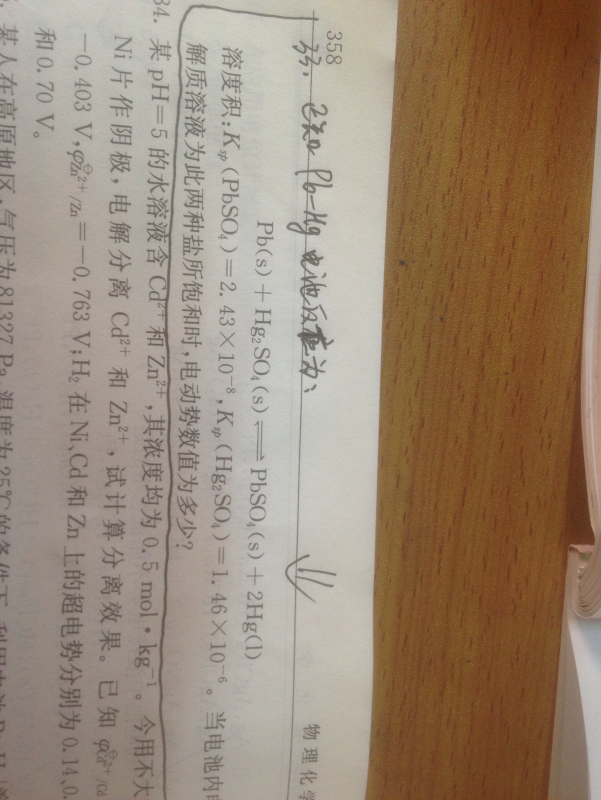 358
物理化学
33. 已知 Pb-Hg 电池反应为:
Pb(s)+Hg₂SO₄(s)⇌PbSO₄(s)+2Hg(l)
溶度积:Kₛₚ(PbSO₄)=2.43×10⁻⁸,Kₛₚ(Hg₂SO₄)=1.46×10⁻⁶。当电池内电
解质溶液为此两种盐所饱和时,电动势数值为多少?
34. 某pH=5的水溶液含Cd²⁺和Zn²⁺,其浓度均为0.5 mol·kg⁻¹。今用不大
Ni片作阴极,电解分离Cd²⁺和Zn²⁺,试计算分离效果。已知φ⊖Cd²⁺/Cd
-0.403 V,φ⊖Zn²⁺/Zn=-0.763 V;H₂在Ni、Cd和Zn上的超电势分别为0.14,0.
和0.70 V。
某人在高原地区,气压为81327 Pa,温度为25℃的条件下,利用电池